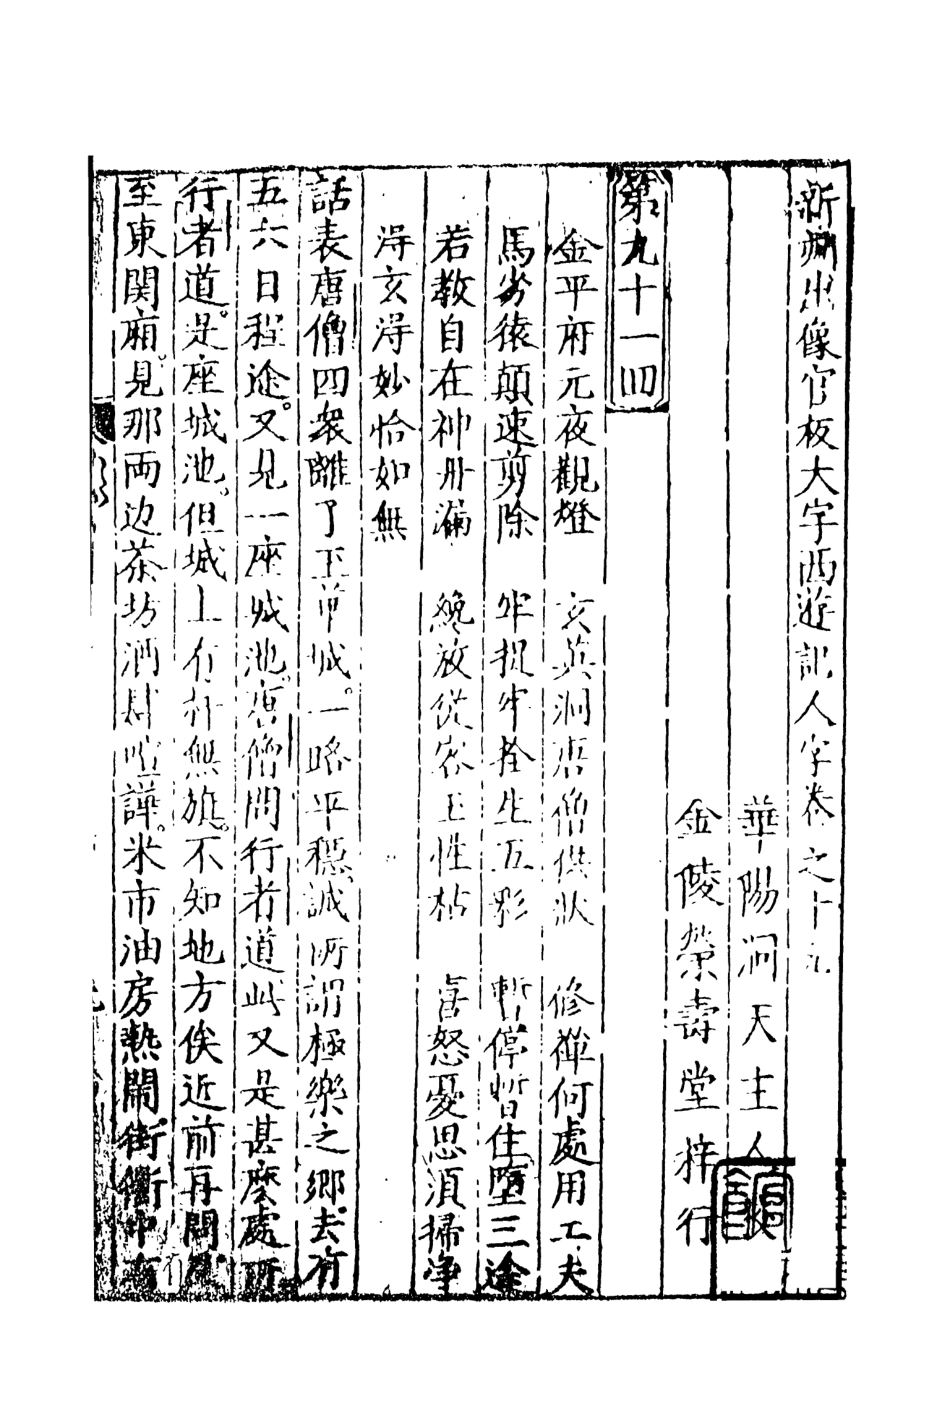 新刻出像官板大字西遊記人字卷之十九
華陽洞天主人校
金陵榮壽堂梓行
第九十一回
金平府元夜觀燈　玄英洞唐僧供狀　修禪何處用工夫
馬劣猿顛速剪除　牢捉牢拴生五彩　暫停暫住墮三途
若教自在神丹漏　纔放從容玉性枯　喜怒憂思須掃净
淂玄淂妙恰如無
話表唐僧四衆離了玉華城。一路平穩。誠所謂極樂之鄉。去有
五六日程途。又見一座城池。唐僧問行者道此又是甚麽處所
行者道。是座城池。但城上有杆無旗。不知地方俟近前再問。及
至東関廂。見那両边茶坊酒肆喧譁。米市油房熱鬧。街衢中有